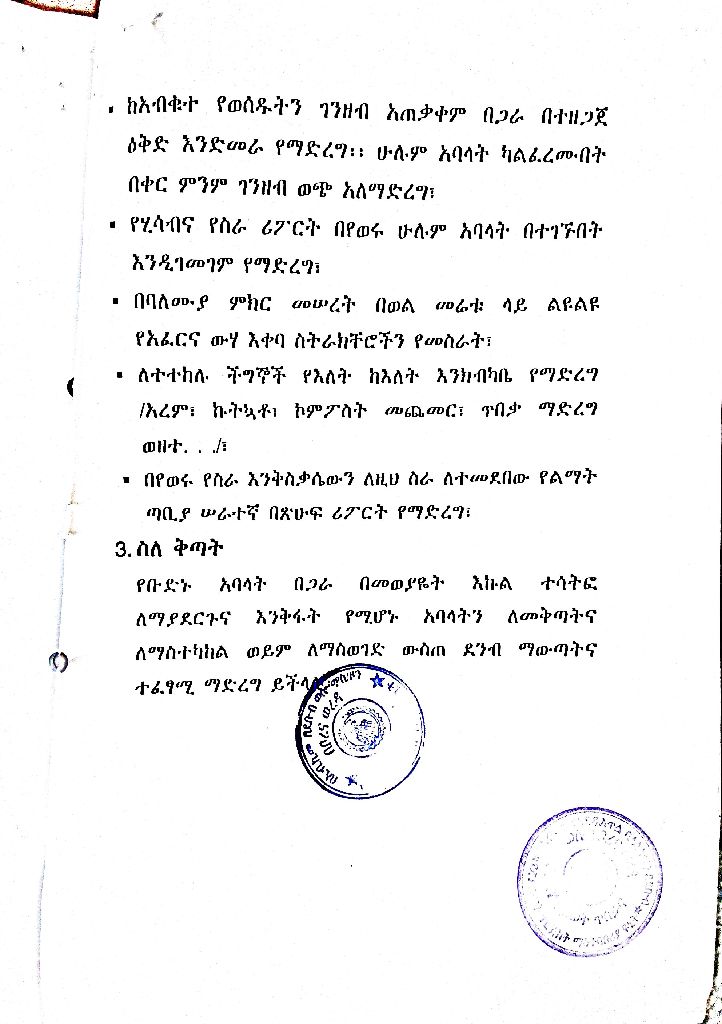 ▪ ከአብቁተ የወሰዱትን ገንዘብ አጠቃቀም በጋራ በተዘጋጀ
ዕቅድ እንድመራ የማድረግ፡፡ ሁሉም አባላት ካልፈረሙበት
በቀር ምንም ገንዘብ ወጭ አለማድረግ፣
▪ የሂሳብና የስራ ሪፖርት በየወሩ ሁሉም አባላት በተገኙበት
እንዲገመገም የማድረግ፣
▪ በባለሙያ ምክር መሠረት በወል መሬቱ ላይ ልዩልዩ
የአፈርና ውሃ እቀባ ስትራክቸሮችን የመስራት፣
▪ ለተተከሉ ችግኞች የእለት ከእለት እንክብካቤ የማድረግ
/አረም፣ ኩትኳቶ፣ ኮምፖስት መጨመር፣ ጥበቃ ማድረግ
ወዘተ. . ./፣
▪ በየወሩ የስራ እንቅስቃሴውን ለዚህ ስራ ለተመደበው የልማት
ጣቢያ ሠራተኛ በጽሁፍ ሪፖርት የማድረግ፣
3. ስለ ቅጣት
የቡድኑ አባላት በጋራ በመወያዬት እኩል ተሳትፎ
ለማያደርጉና እንቅፋት የሚሆኑ አባላትን ለመቅጣትና
ለማስተካከል ወይም ለማስወገድ ውስጠ ደንብ ማውጣትና
ተፈፃሚ ማድረግ